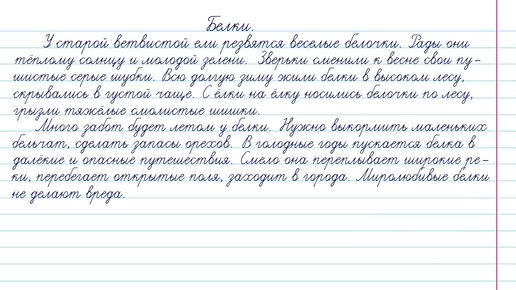 Белки.
У старой ветвистой ели резвятся веселые белочки. Рады они
тёплому солнцу и молодой зелени. Зверьки сменили к весне свои пу-
шистые серые шубки. Всю долгую зиму жили белки в высоком лесу,
скрывались в густой чаще. С ёлки на ёлку носились белочки по лесу,
грызли тяжёлые смолистые шишки.
Много забот будет летом у белки. Нужно выкормить маленьких
бельчат, сделать запасы орехов. В голодные годы пускается белка в
далёкие и опасные путешествия. Смело она переплывает широкие ре-
ки, перебегает открытые поля, заходит в города. Миролюбивые белки
не делают вреда.